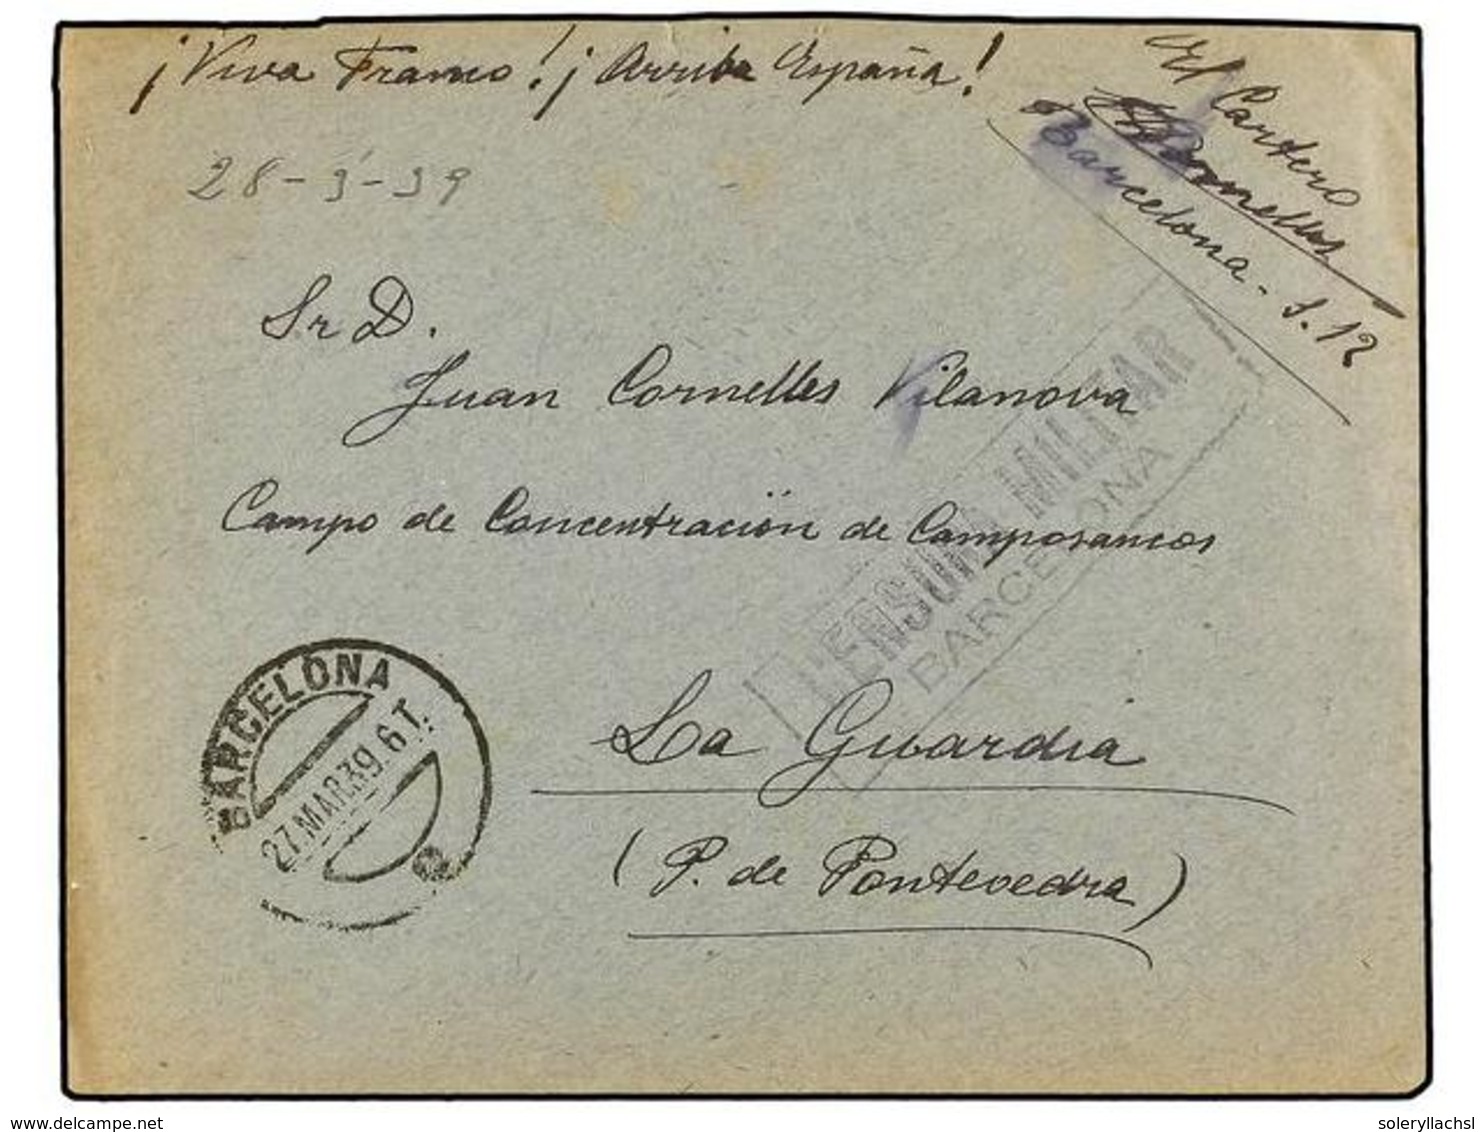 ¡Viva Franco! ¡Arriba España!
El Cartero
Cornelles
Barcelona - S. 12
28-3-39
Sr D.
Juan Cornelles Vilanova
Campo de Concentración de Camposancos
CENSURA MILITAR
BARCELONA
La Guardia
(P. de Pontevedra)
BARCELONA
27.MAR.39.6T.
delcampe.net
soleryllachsl